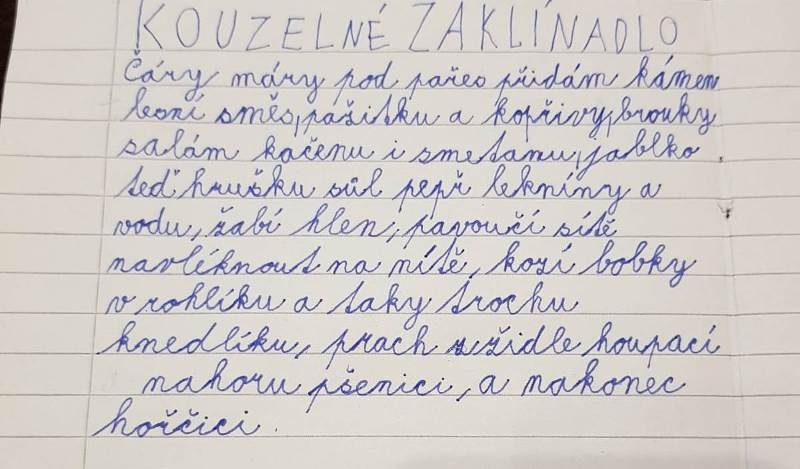 KOUZELNÉ ZAKLÍNADLO
Čáry máry pod pařez přidám kámen
lesní směs, pažitku a kopřivy, brouky
salám kačenu i smetanu, jablko,
teď hrušku sůl pepř lekníny a
vodu, žabí hlen, pavoučí sítě
navléknout na nítě, kozí bobky
v rohlíku a taky trochu
knedlíku, prach z židle houpací
nahoru pšenici, a nakonec
hořčici.